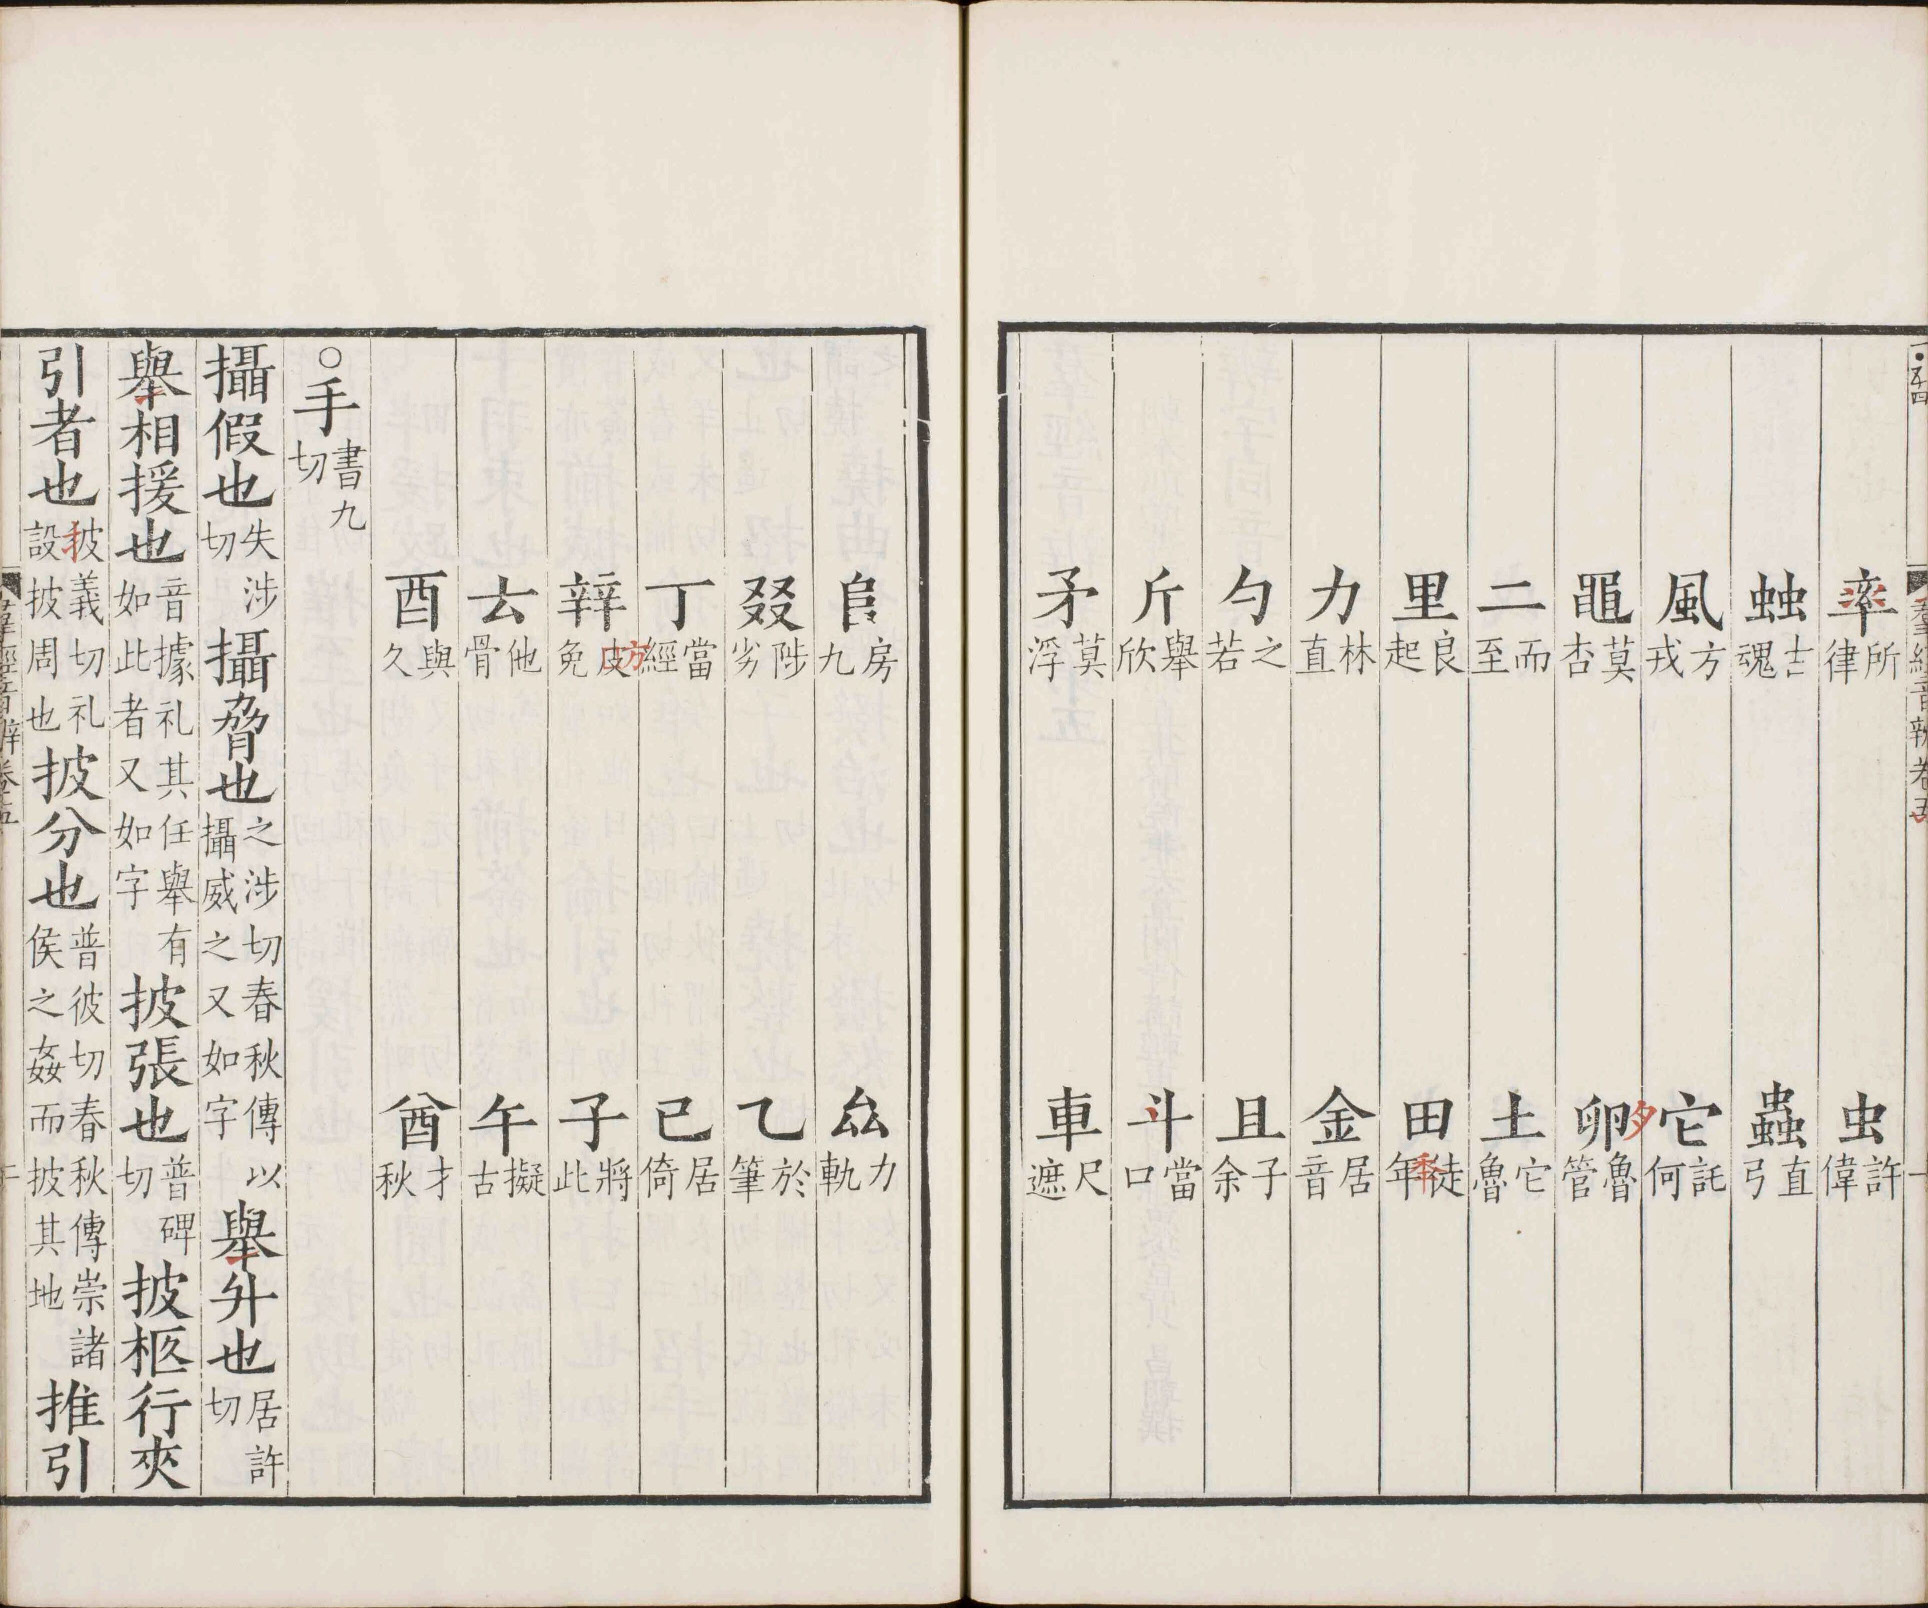 率所律 虫許偉
䖵士魂 蟲直弓
風方戎 它託何
黽莫杏 卵魯管
二而至 土它魯
里良起 田徒年
力林直 金居音
勺之若 且子余
斤舉欣 斗當口
矛莫浮 車尺遮
𨸏房九 厽力軌
叕陟劣 乙於筆
丁當經 己居倚
辡皮免 子將此
𠫓他骨 午擬古
酉與久 酋才秋
○手書九切
攝假也失涉切攝脅也之涉切春秋傳以攝威之又如字舉升也居許切
舉相援也音據礼其任舉有如此者又如字披張也普碑切披柩行夾
引者也披義切礼設披周也披分也普彼切春秋傳崇諸侯之姦而披其地推引
羣經音辨卷五